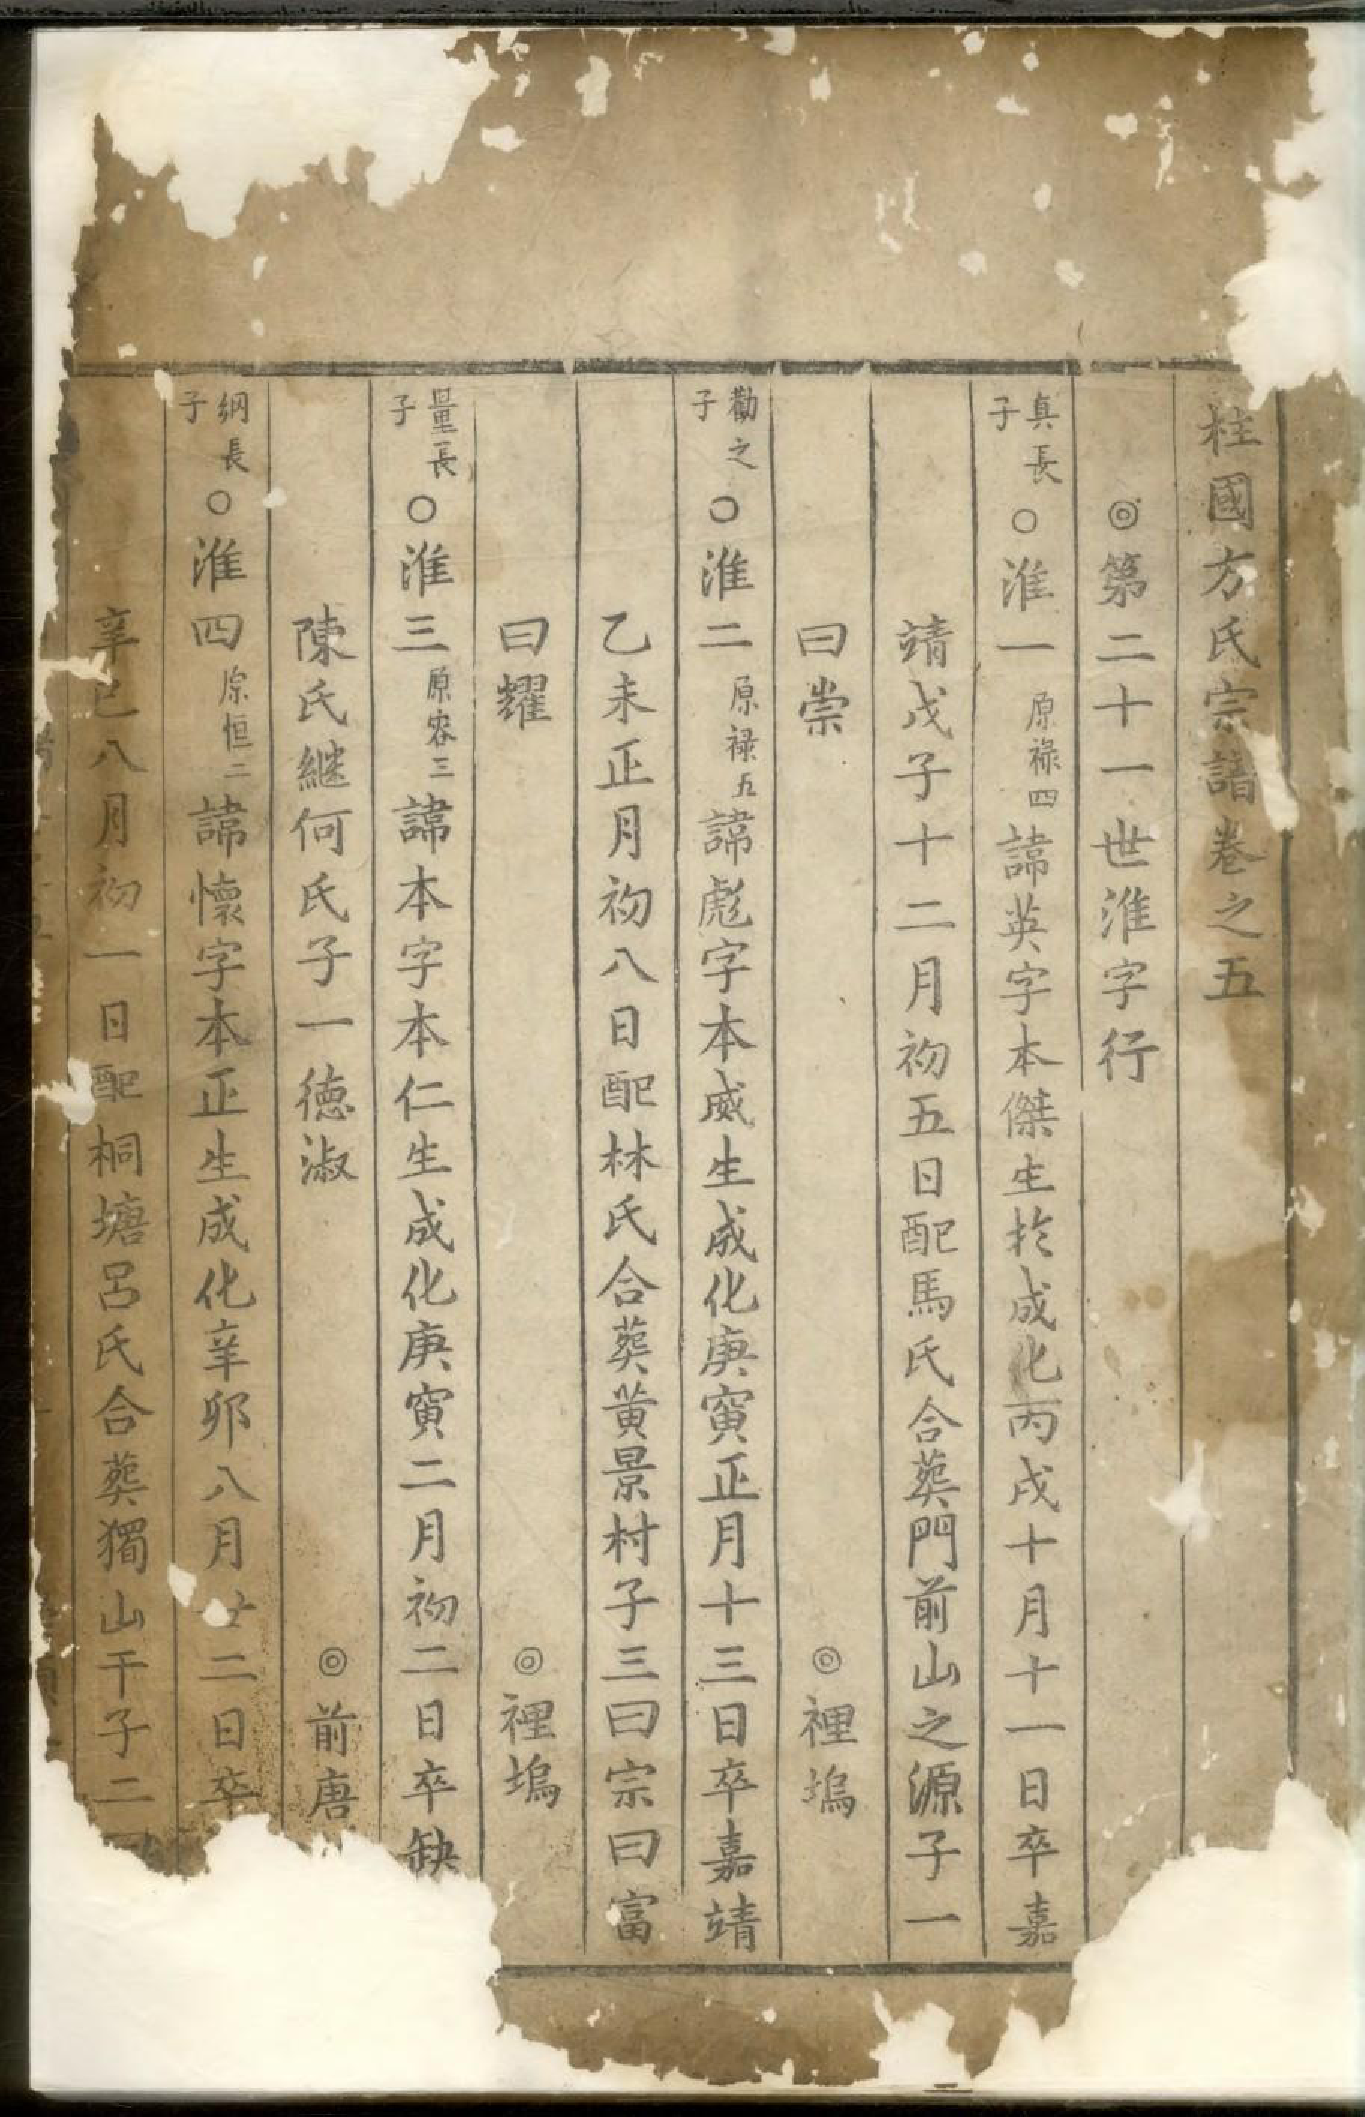 柱國方氏宗譜卷之五
◎第二十一世淮字行
真長子○淮一原祿四諱英字本傑生於成化丙戌十月十一日卒嘉
靖戊子十二月初五日配馬氏合葬門前山之源子一
曰崇◎裡塢
勸之子○淮二原禄五諱彪字本威生成化庚寅正月十三日卒嘉靖
乙未正月初八日配林氏合葬黄景村子三曰宗曰富
曰耀◎裡塢
量長子○淮三原容三諱本字本仁生成化庚寅二月初二日卒缺
陳氏繼何氏子一德淑◎前唐
綱長子○淮四原恒二諱懷字本正生成化辛卯八月廿二日卒
辛巳八月初一日配桐塘呂氏合葬獨山干子二曰